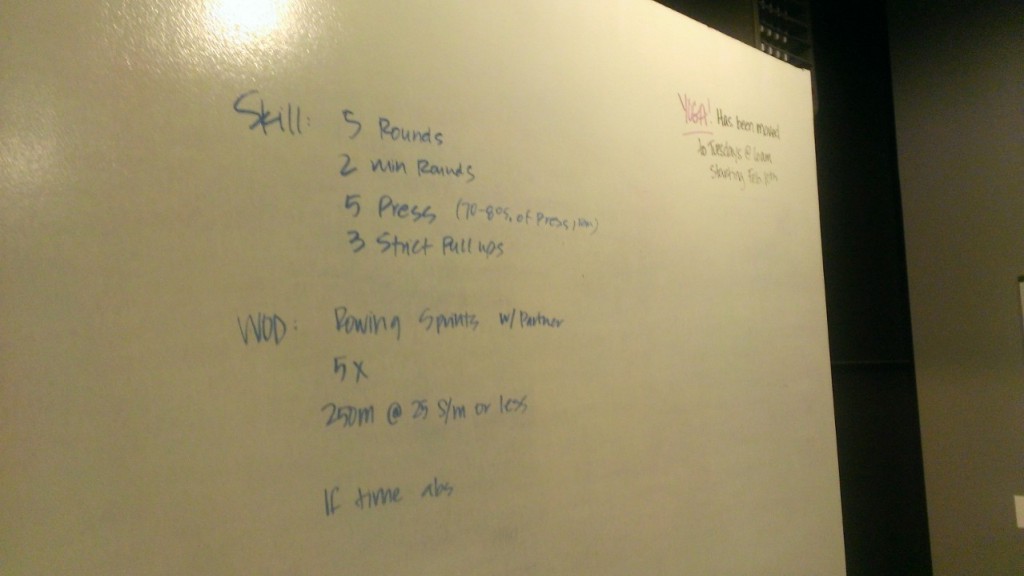 Skill: 5 Rounds
2 min Rounds
5 Press (70-80% of Press
3 Strict Pull ups
WOD: Rowing Sprints w/ Partner
5 x
250m @ 25 S/m or less
If time abs
YOGA! Has been moved
to Tuesdays @
Starting Feb